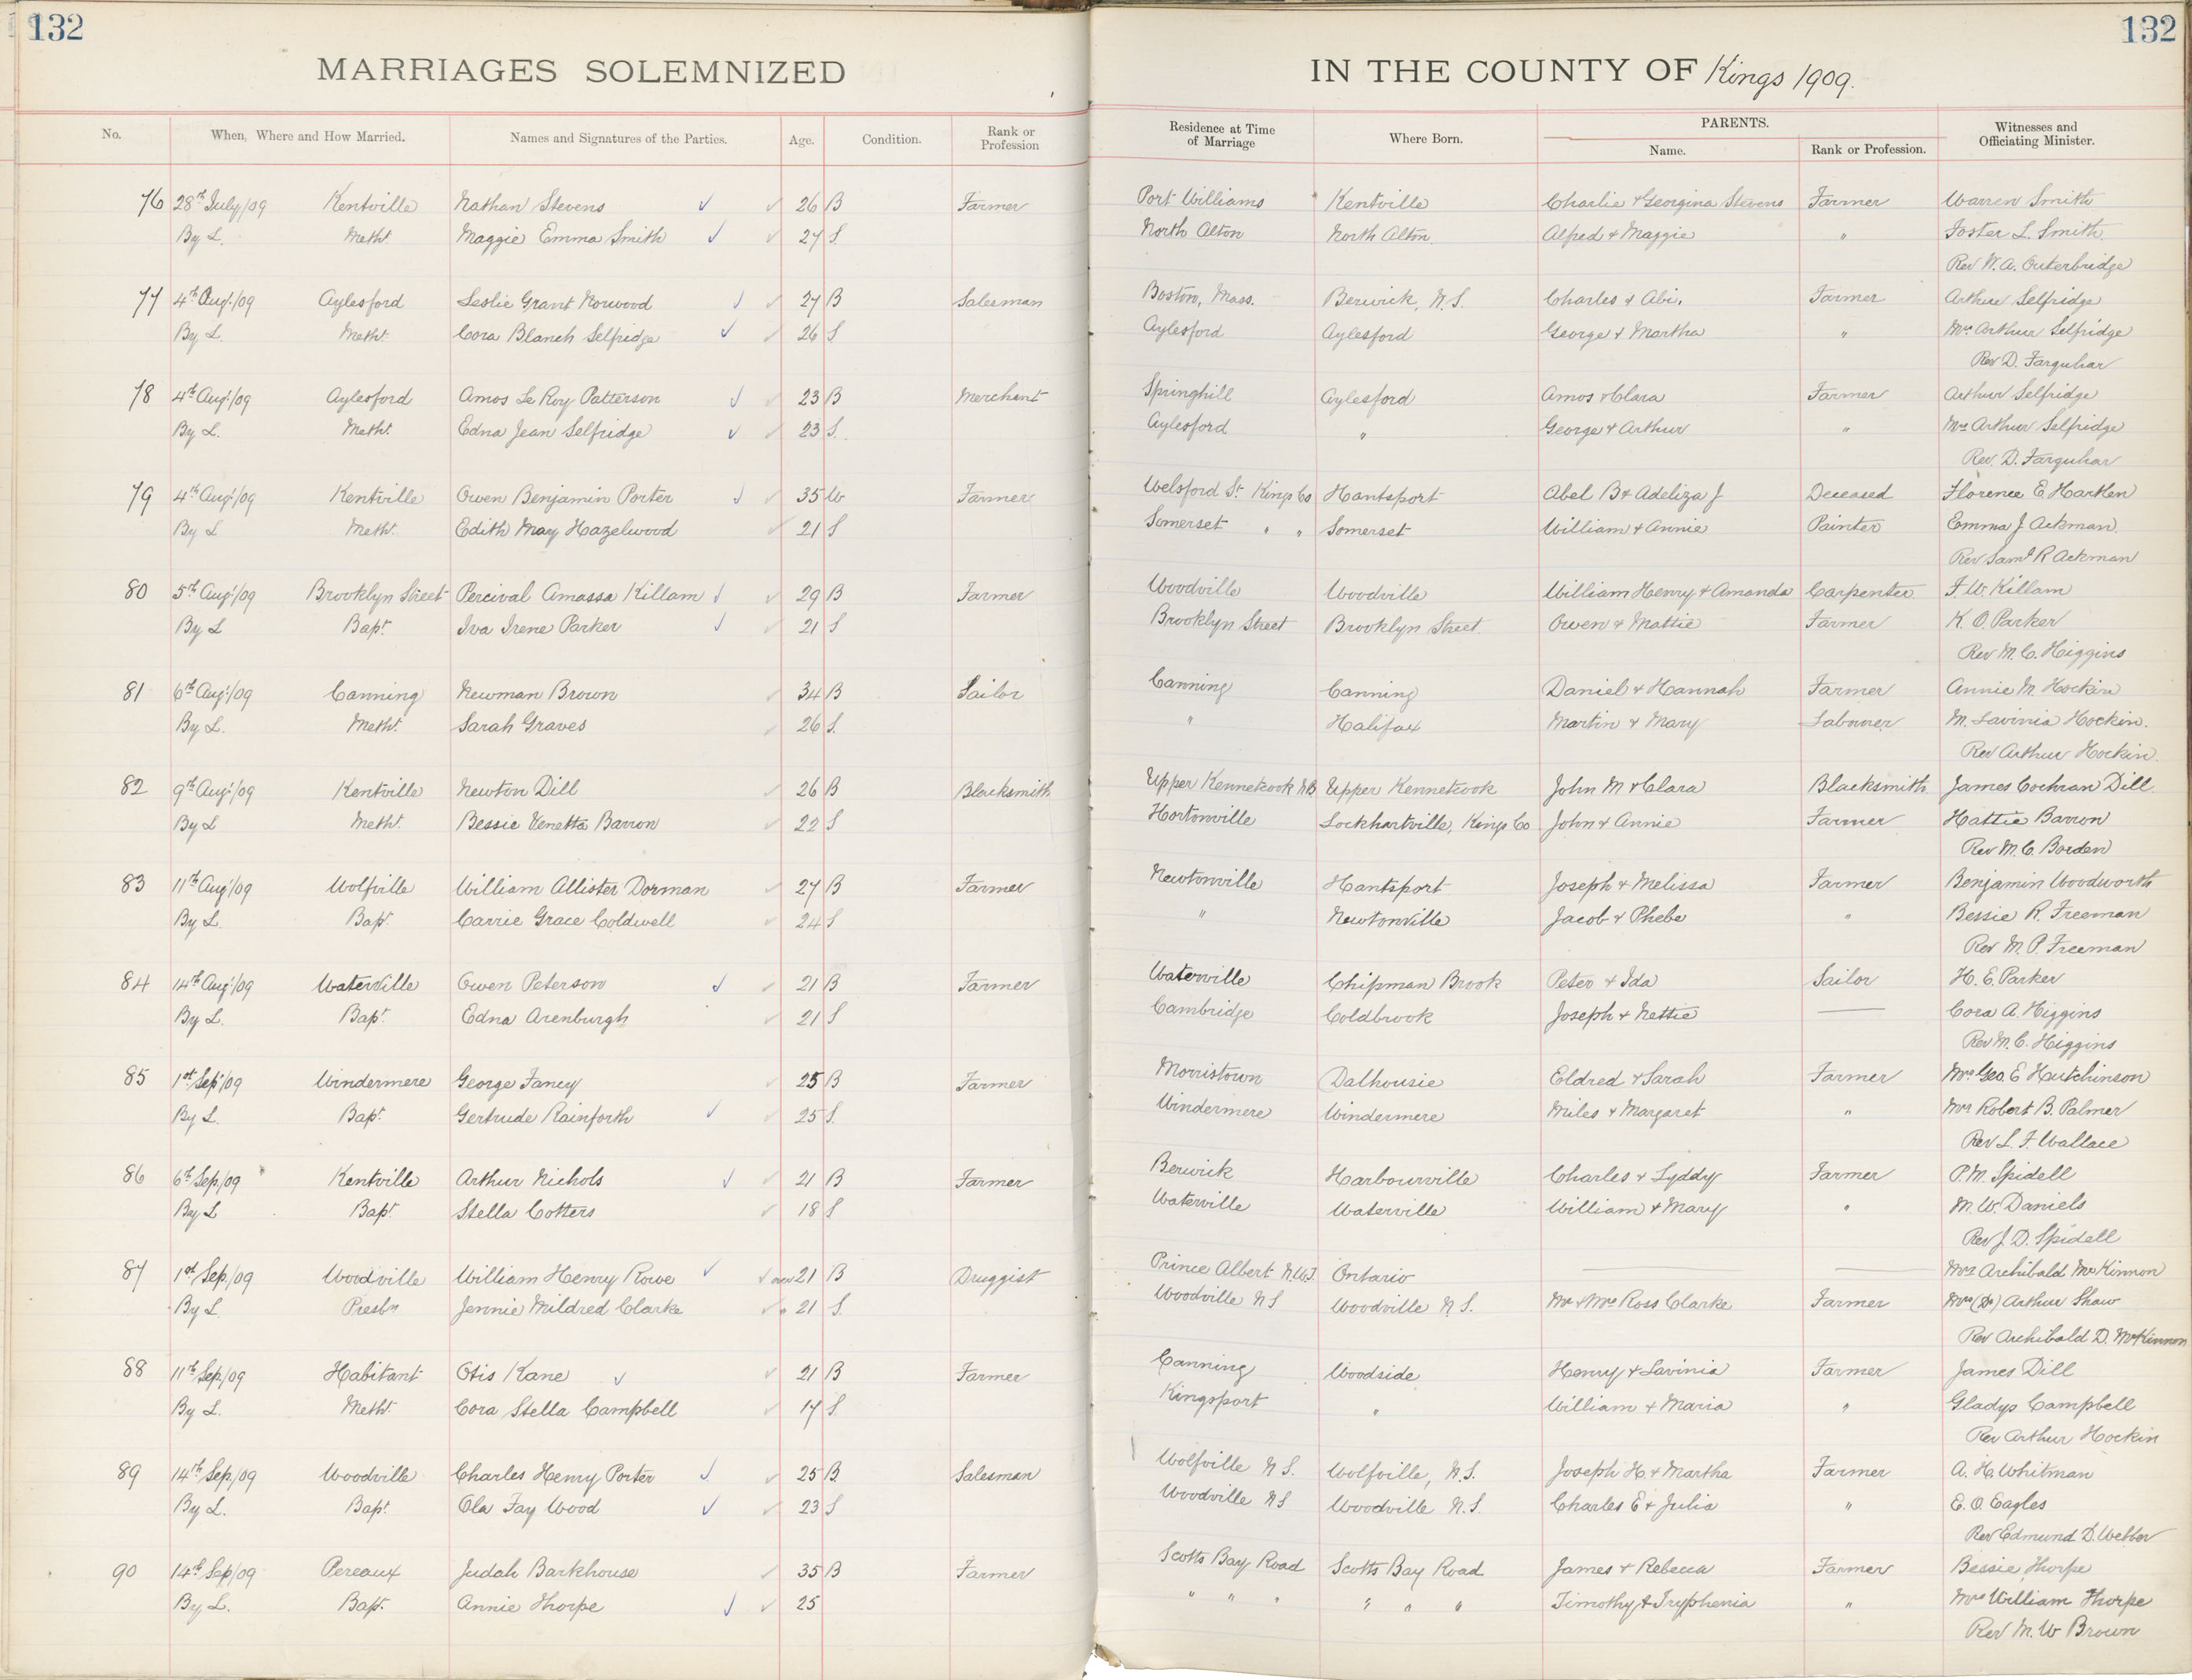 132 132
MARRIAGES SOLEMNIZED IN THE COUNTY OF Kings 1909.
No. When, Where and How Married. Names and Signatures of the Parties. Age. Condition. Rank or Profession Residence at Time of Marriage Where Born. PARENTS. Name. Rank or Profession. Witnesses and Officiating Minister.
76 28th July/09 Kentville Nathan Stevens 26 B Farmer Port Williams Kentville Charlie & Georgina Stevens Farmer Warren Smith
By L. Meth. Maggie Emma Smith 27 S. North Alton North Alton. Alfred & Maggie " Foster L. Smith.
Rev W. A. Outerbridge
77 4th Aug./09 Aylesford Leslie Grant Norwood 27 B Salesman Boston, Mass. Berwick, N.S. Charles & Abi. Farmer Arthur Selfridge
By L. Meth. Cora Blanch Selfridge 26 S Aylesford Aylesford George & Martha " Mrs Arthur Selfridge
Rev D. Farquhar
78 4th Aug./09 Aylesford Amos Le Roy Patterson 23 B Merchant Springhill Aylesford Amos & Clara Farmer Arthur Selfridge
By L. Meth. Edna Jean Selfridge 23 S. Aylesford " George & Arthur " Mrs Arthur Selfridge
Rev. D. Farquhar
79 4th Aug./09 Kentville Owen Benjamin Porter 35 W Farmer Welsford St. Kings Co Hantsport Abel B & Adeliza J Deceased Florence E. Harlen
By L Meth. Edith May Hazelwood 21 S Somerset " " Somerset William & Annie Painter Emma J. Ackman.
Rev Saml R Ackman
80 5th Aug./09 Brooklyn Street Percival Amassa Killam 29 B Farmer Woodville Woodville William Henry & Amanda Carpenter F. W. Killam
By L Bapt. Iva Irene Parker 21 S Brooklyn Street Brooklyn Street. Owen & Mattie Farmer K. O. Parker
Rev M. C. Higgins
81 6th Aug./09 Canning Newman Brown 34 B Sailor Canning Canning Daniel & Hannah Farmer Annie M. Hockin
By L. Meth. Sarah Graves 26 S. " Halifax Martin & Mary Labourer M. Lavinia Hockin.
Rev Arthur Hockin.
82 9th Aug./09 Kentville Newton Dill 26 B Blacksmith Upper Kennetcook N.B Upper Kennetcook John M & Clara Blacksmith James Cochran Dill.
By L Meth. Bessie Venetta Barron 22 S Hortonville Lockhartville, Kings Co John & Annie Farmer Hattie Barron
Rev M. C. Borden
83 11th Aug./09 Wolfville William Allister Dorman 27 B Farmer Newtonville Hantsport Joseph & Melissa Farmer Benjamin Woodworth
By L. Bapt. Carrie Grace Coldwell 24 S " Newtonville Jacob & Phebe " Bessie R. Freeman
Rev M. P. Freeman
84 14th Aug./09 Waterville Owen Peterson 21 B Farmer Waterville Chipman Brook Peter & Ida Sailor H. E. Parker
By L. Bapt. Edna Arenburgh 21 S Cambridge Coldbrook Joseph & Nettie — Cora A. Higgins
Rev M. C. Higgins
85 1st Sep./09 Windermere George Fancy 25 B Farmer Morristown Dalhousie Eldred & Sarah Farmer Mrs Geo. E Hutchinson
By L. Bapt. Gertrude Rainforth 25 S. Windermere Windermere Miles & Margaret " Mrs Robert B. Palmer
Rev L. F. Wallace
86 6th Sep./09 Kentville Arthur Nichols 21 B Farmer Berwick Harbourville Charles & Lyddy Farmer P. M. Spidell
By L Bapt. Stella Cotters 18 S Waterville Waterville William & Mary " M. W. Daniels
Rev J. D. Spidell
87 1st Sep./09 Woodville William Henry Rowe over 21 B Druggist Prince Albert N.W.T. Ontario — — Mrs Archibald McKinnon
By L Presbn Jennie Mildred Clarke " 21 S. Woodville N S Woodville N. S. Mr & Mrs Ross Clarke Farmer Mrs (Dr) Arthur Shaw
Rev Archibald D. McKinnon
88 11th Sep./09 Habitant Otis Kane 21 B Farmer Canning Woodside Henry & Lavinia Farmer James Dill
By L. Meth. Cora Stella Campbell 17 S. Kingsport " William & Maria " Gladys Campbell
Rev Arthur Hockin
89 14th Sep./09 Woodville Charles Henry Porter 25 B. Salesman Wolfville N S. Wolfville, N.S. Joseph H. & Martha Farmer A. H. Whitman
By L. Bapt. Ola Fay Wood 23 S Woodville N S Woodville N. S. Charles E & Julia " E. O. Eagles
Rev Edmund D. Webber
90 14th Sep/09 Pereaux Judah Barkhouse 35 B Farmer Scotts Bay Road Scotts Bay Road James & Rebecca Farmer Bessie Thorpe
By L. Bapt. Annie Thorpe 25 " " " " " " Timothy & Tryphenia " Mrs William Thorpe
Rev M. W Brown